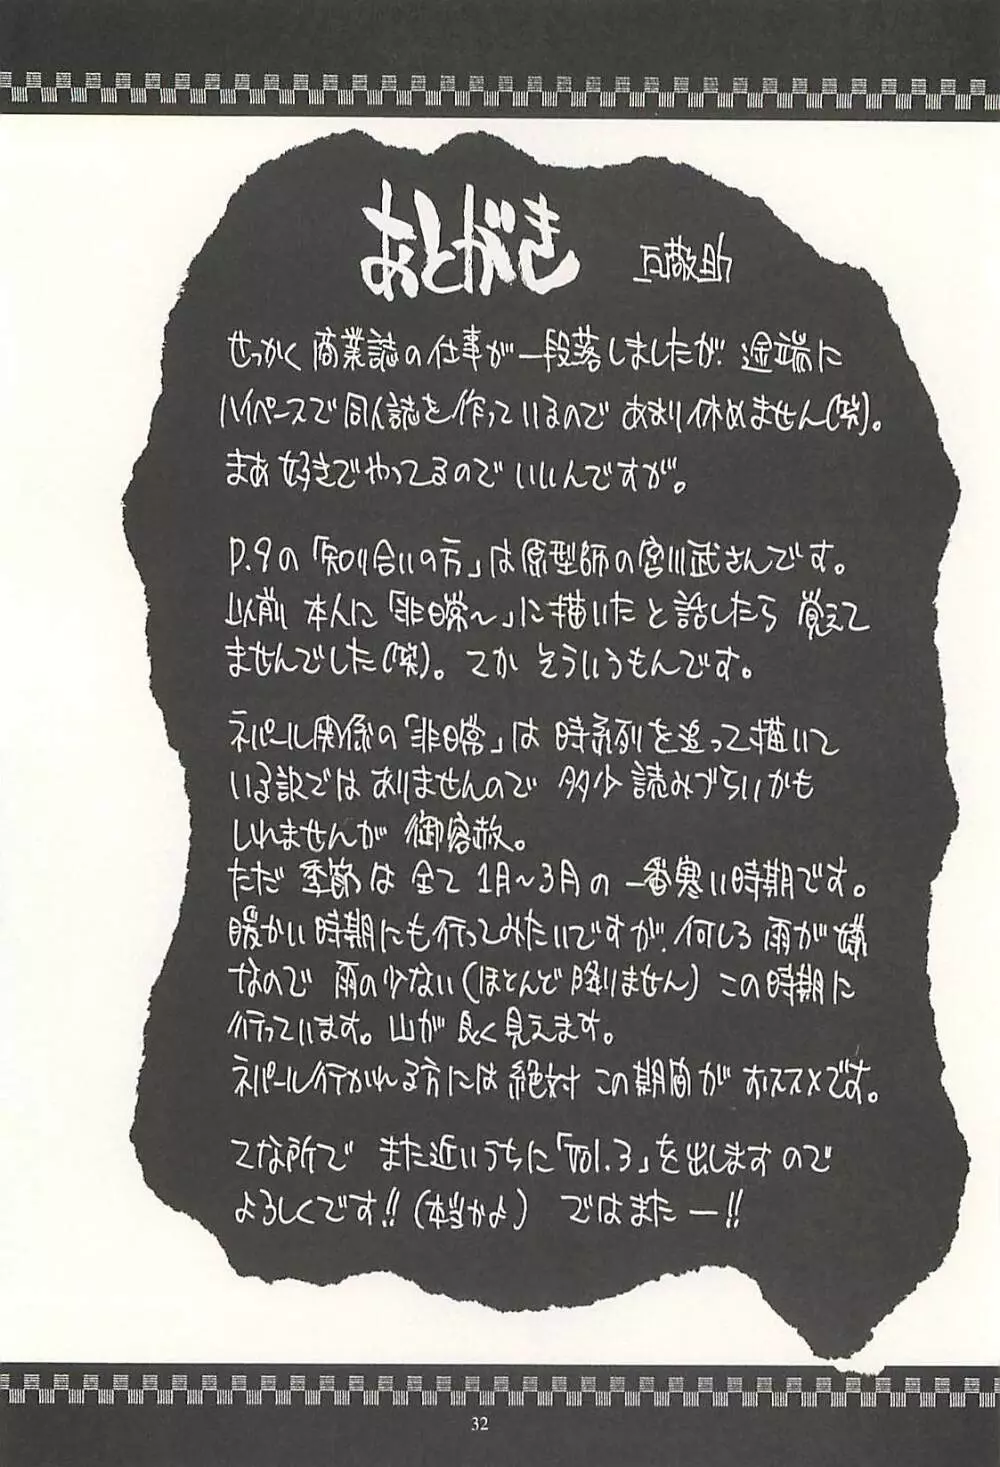 あとがき
互敬助
せっかく商業誌の仕事が一段落しましたが、途端に
ハイペースで同人誌を作っているのであまり休めません(笑)。
まあ好きでやってるのでいいんですが。
P.9の「知り合いの方」は原型師の宮川武さんです。
以前本人に「非日常〜」に描いたと話したら覚えて
ませんでした(笑)。てかそういうもんです。
ネパール関係の「非日常」は時系列を追って描いて
いる訳ではありませんので多少読みづらいかも
しれませんが御容赦。
ただ季節は全て1月〜3月の一番寒い時期です。
暖かい時期にも行ってみたいですが、何しろ雨が嫌
なので雨の少ない(ほとんど降りません)この時期に
行っています。山が良く見えます。
ネパール行かれる方には絶対この期間がオススメです。
てな所でまた近いうちに「Vol.3」を出しますので
よろしくです!!(本当かよ)ではまたー!!
32